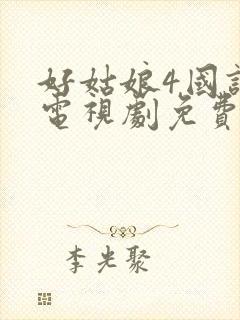 好姑娘4,國
電視劇免費
李光聚